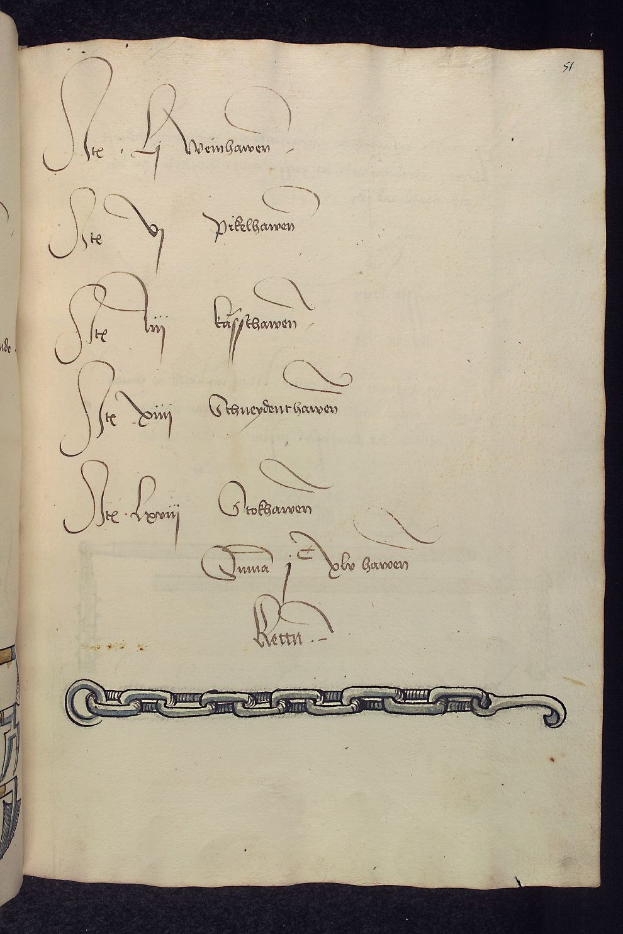 51
Itē . Lj Weinhawen
Itē vj Pikelhawen
Itē kaſsthawen
Itē xiiij Schneydenthawen
Itē . Lxviij Stokhawen
Suma j C xlv hawen
Kettn